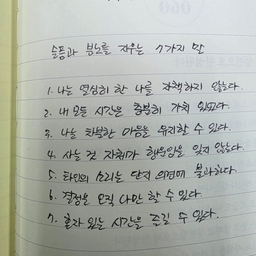 슬픔과 분노를 지우는 7가지 말
1. 나는 열심히 한 나를 자책하지 않는다.
2. 내 모든 시간은 충분히 가치 있었다.
3. 나는 차분한 마음을 유지할 수 있다.
4. 사는 것 자체가 행운임을 잊지 않는다.
5. 타인의 소리는 단지 의견에 불과하다.
6. 결정은 오직 나만 할 수 있다.
7. 혼자 있는 시간은 즐길 수 있다.